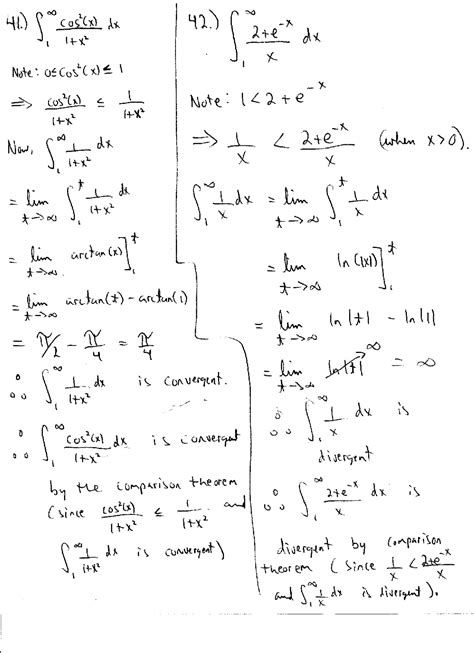 41.) ∫₁^∞ cos²(x)/(1+x²) dx
Note: 0≤cos²(x)≤1
⇒ cos²(x)/(1+x²) ≤ 1/(1+x²)
Now, ∫₁^∞ 1/(1+x²) dx
= lim t→∞ ∫₁^t 1/(1+x²) dx
= lim t→∞ arctan(x)]₁^t
= lim t→∞ arctan(t) - arctan(1)
= π/2 - π/4 = π/4
∴ ∫₁^∞ 1/(1+x²) dx is convergent.
∴ ∫₁^∞ cos²(x)/(1+x²) dx is convergent
by the comparison theorem
(since cos²(x)/(1+x²) ≤ 1/(1+x²) and
∫₁^∞ 1/(1+x²) dx is convergent)
42.) ∫₁^∞ (2+e^-x)/x dx
Note: 1<2+e^-x
⇒ 1/x < (2+e^-x)/x (when x>0).
∫₁^∞ 1/x dx = lim t→∞ ∫₁^t 1/x dx
= lim t→∞ ln(|x|)]₁^t
= lim t→∞ ln|t| - ln|1|
= lim t→∞ ln|t| ∞ = ∞
∴ ∫₁^∞ 1/x dx is
divergent
∴ ∫₁^∞ (2+e^-x)/x dx is
divergent by comparison
theorem (since 1/x < (2+e^-x)/x
and ∫₁^∞ 1/x dx is divergent).